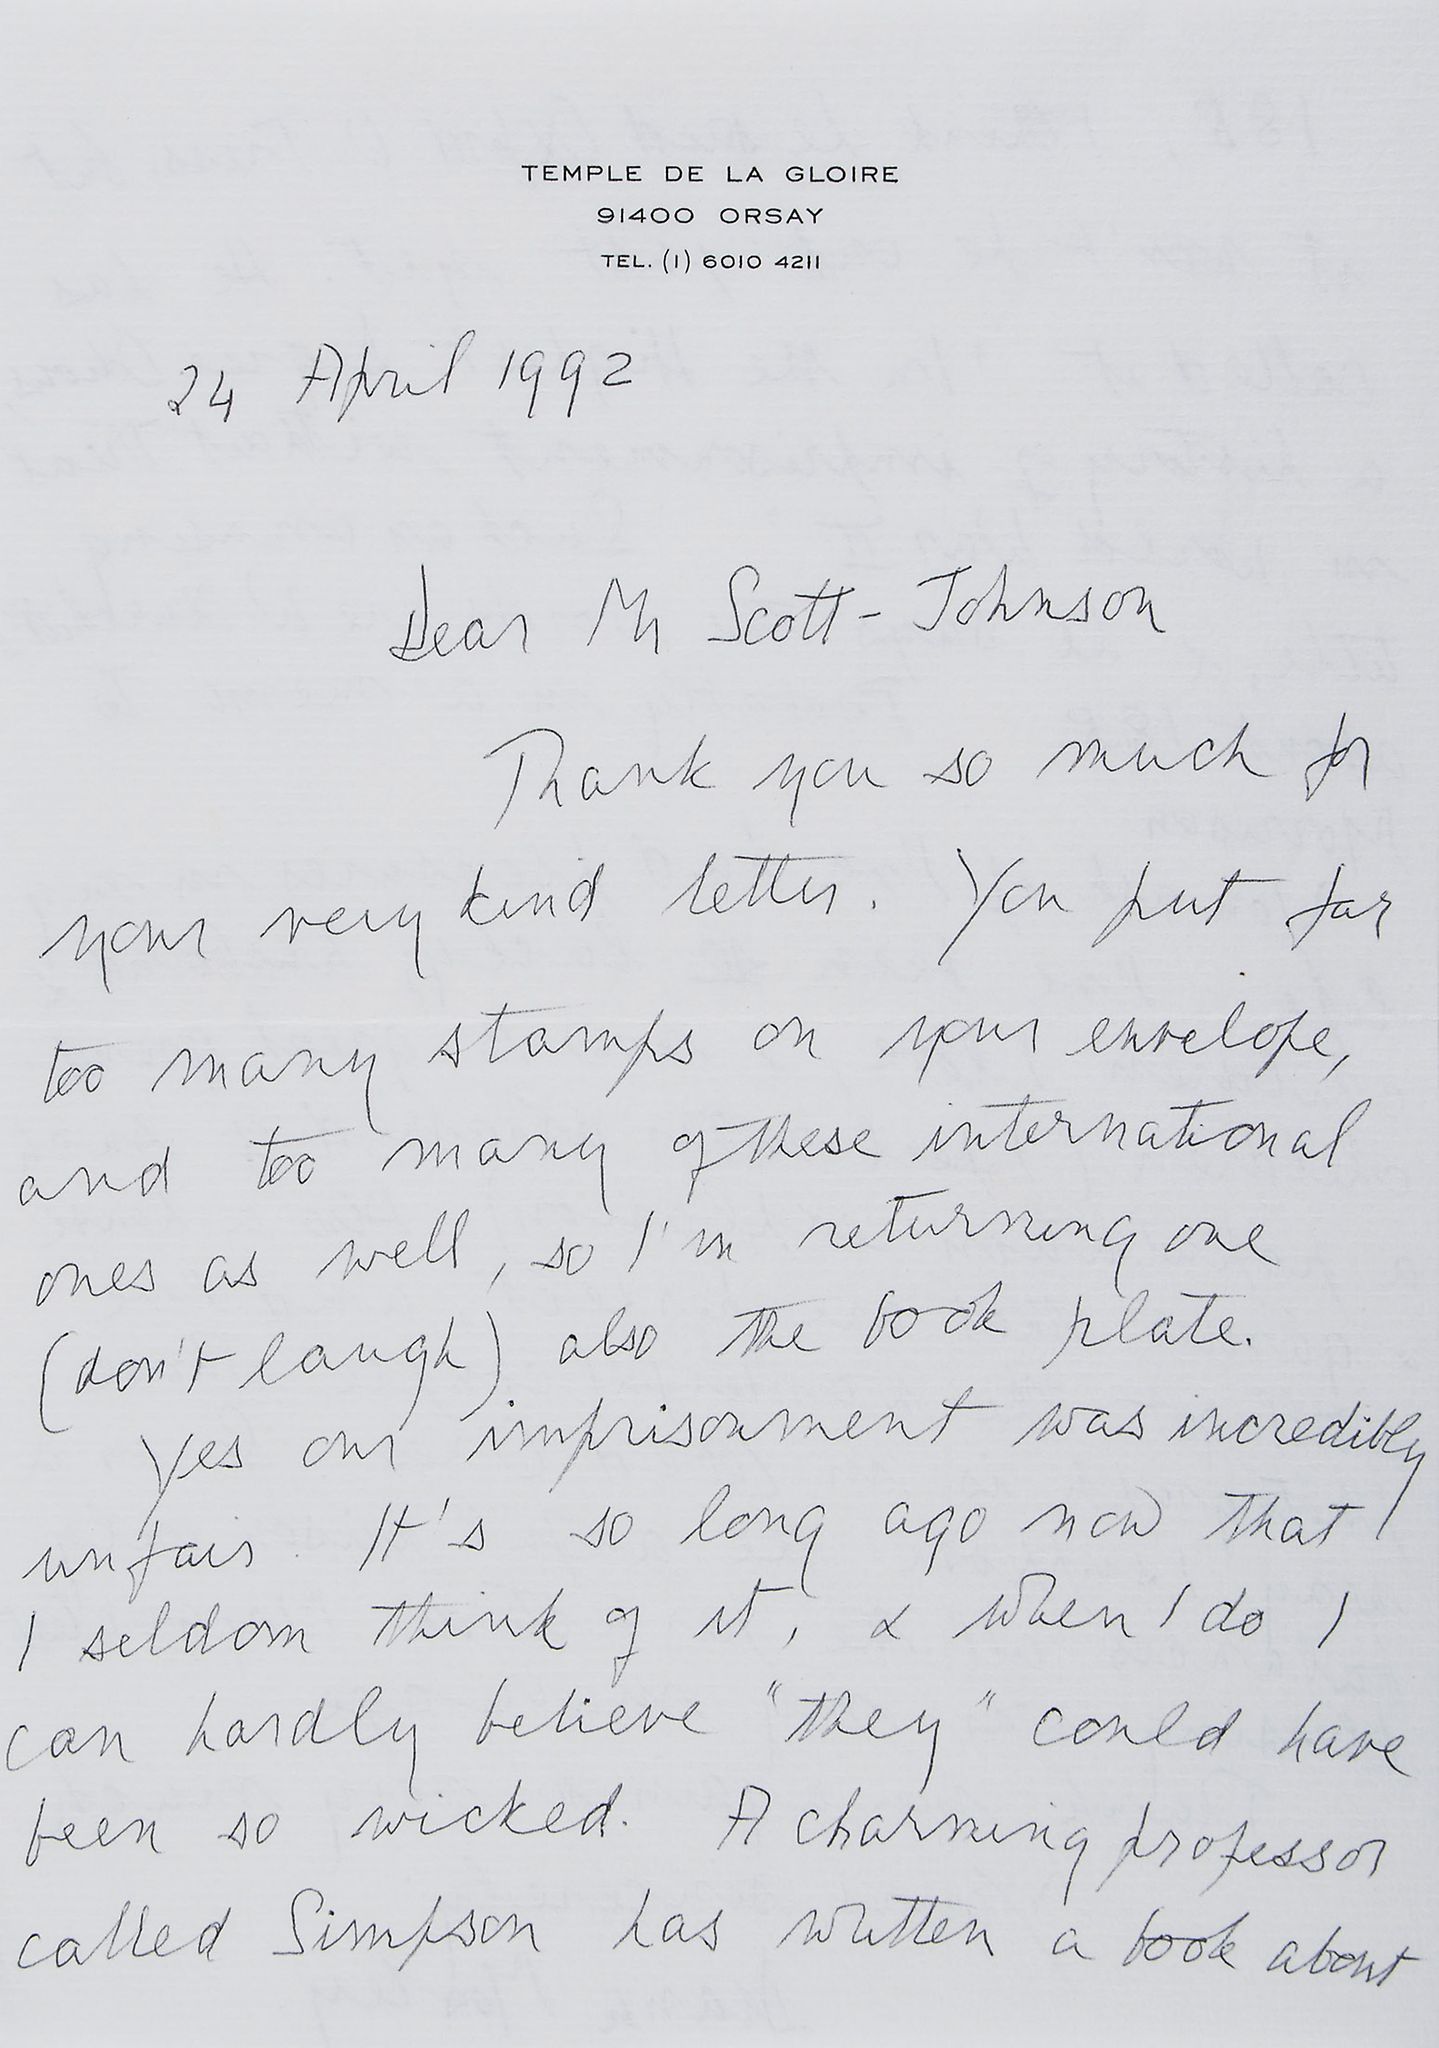 TEMPLE DE LA GLOIRE
91400 ORSAY
TEL. (1) 6010 4211
24 April 1992
Dear Mr Scott-Johnson
Thank you so much for
your very kind letter. You put far
too many stamps on your envelope,
and too many of these international
ones as well, so I'm returning one
(don't laugh) also the book plate.
Yes our imprisonment was incredibly
unfair. It's so long ago now that
I seldom think of it, & when I do I
can hardly believe "they" could have
been so wicked. A charming professor
called Simpson has written a book about